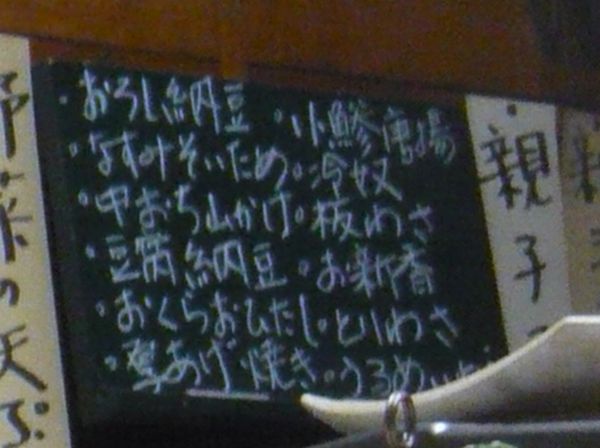 ・おろし納豆 ・小鯵唐揚
・なすみそいため ・冷奴
・中おち山かけ ・板わさ
・豆腐納豆 ・お新香
・おくらおひたし ・とりわさ
・あげ焼き ・うるめ
親子
野菜の天ぷ